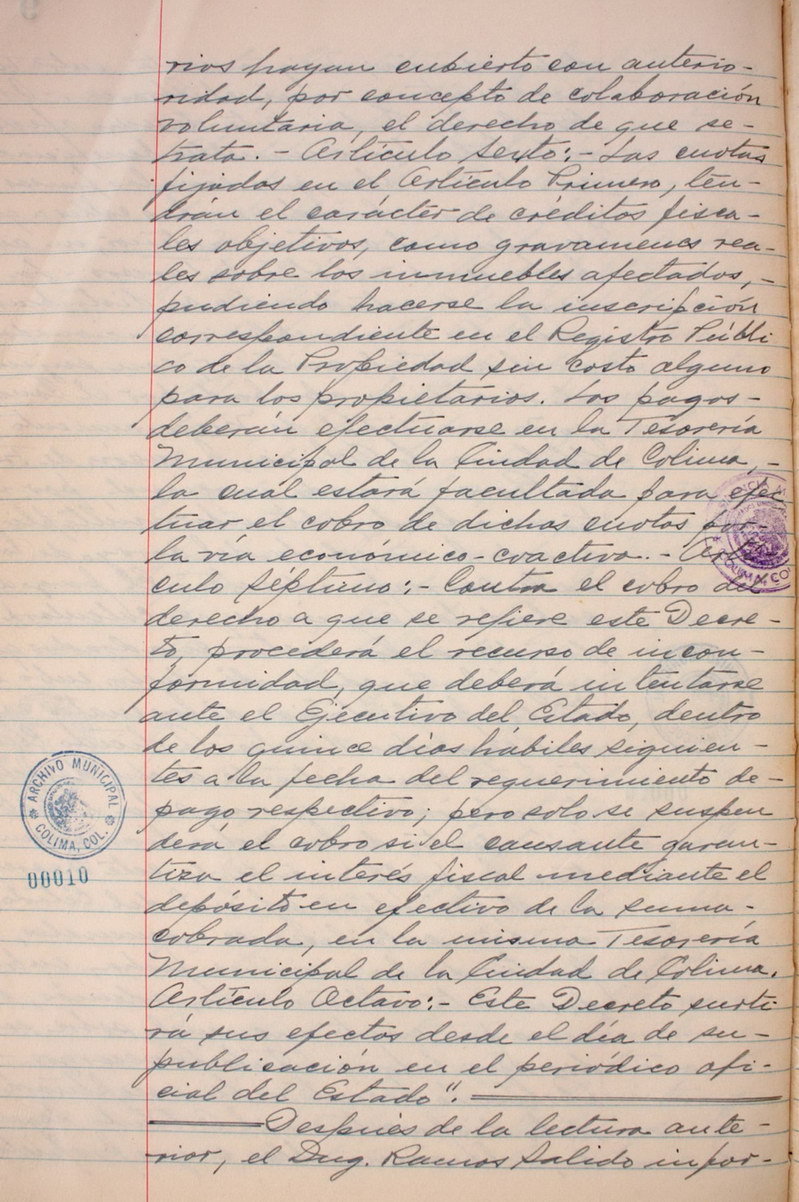 rios hayan cubierto con anterio-
ridad, por concepto de colaboración
voluntaria, el derecho de que se-
trata.- Artículo Sexto:- Las cuotas
fijadas en el Artículo Primero, ten-
drán el carácter de créditos fisca-
les objetivos, como gravamenes rea-
les sobre los inmuebles afectados,-
pudiendo hacerse la inscripción
correspondiente en el Registro Públi
co de la Propiedad sin costo alguno
para los propietarios. Los pagos-
deberán efectuarse en la Tesorería
Municipal de la Ciudad de Colima,-
la cual estará facultada para efec
tuar el cobro de dichas cuotas por-
la vía económico-coactiva.- Artí
culo Séptimo:- Contra el cobro del
derecho a que se refiere este Decre-
to, procederá el recurso de incon-
formidad, que deberá intentarse
ante el Ejecutivo del Estado, dentro
de los quince días hábiles siguien-
tes a la fecha del requerimiento de-
pago respectivo; pero solo se suspen
derá el cobro si el causante garan-
tiza el interés fiscal mediante el
depósito en efectivo de la suma-
cobrada, en la misma Tesorería
Municipal de la Ciudad de Colima.
Artículo Octavo:- Este Decreto surti
rá sus efectos desde el día de su-
publicación en el periódico ofi-
cial del Estado".
Después de la lectura ante-
rior, el Ing. Ramos Salido infor-
ARCHIVO MUNICIPAL
COLIMA, COL.
00010